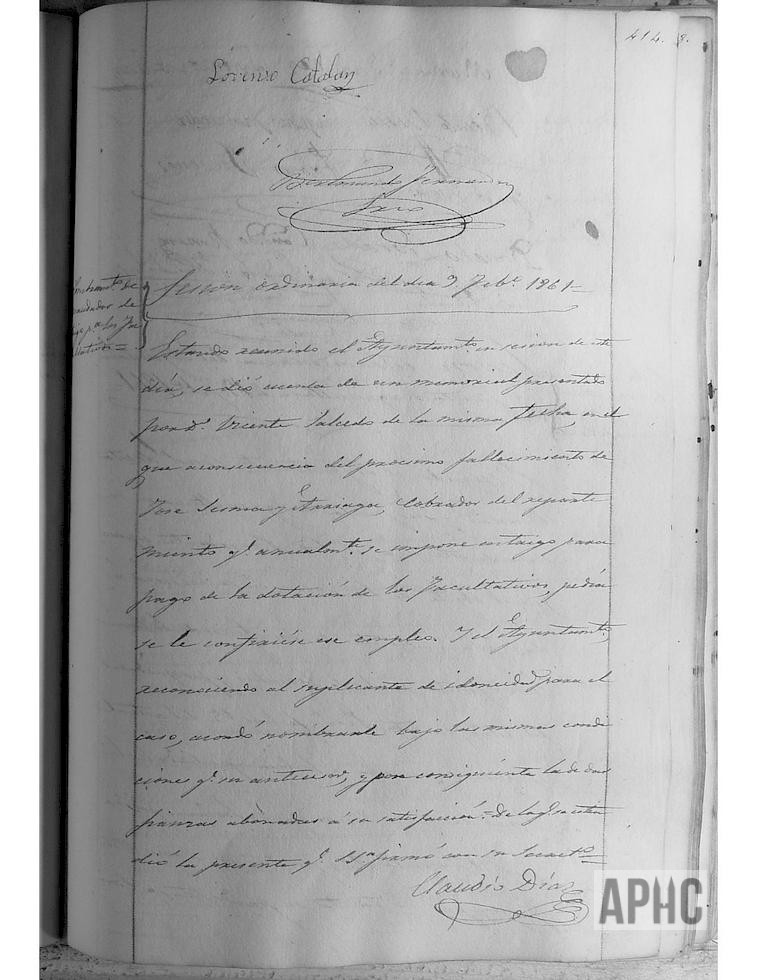 414. 8.
Lorenzo Catalan
Bermundo Fernandez
Sesion ordinaria del dia 9 Feb.º 1861=
Nombram.to de
recaudador de
pago p.a los Fa
cultativos=
Estando reunido el Ayuntam.to en sesion de este
dia, se dió cuenta de un memorial presentado
por D.n Vicente Salcedo de la misma fecha, en el
que a consecuencia del procsimo fallecimiento de
Jose Serma y Arriaga, Cobrador del reparti
miento q.e anualm.te se impone en trigo para
pago de la dotación de los Facultativos, pedia
se le confiriése ese empleo. Y el Ayuntam.to
reconociendo al suplicante de idoneidad para el
caso, acordó nombrarle bajo las mismas condi
ciones q.e su antecesor, y por consiguiente la de dar
fianzas abonadas á su satisfaccion.= De lo q.e se esten
dió la presente q.e SS.a firmó con su Secret.o=
Claudio Díaz
APHC